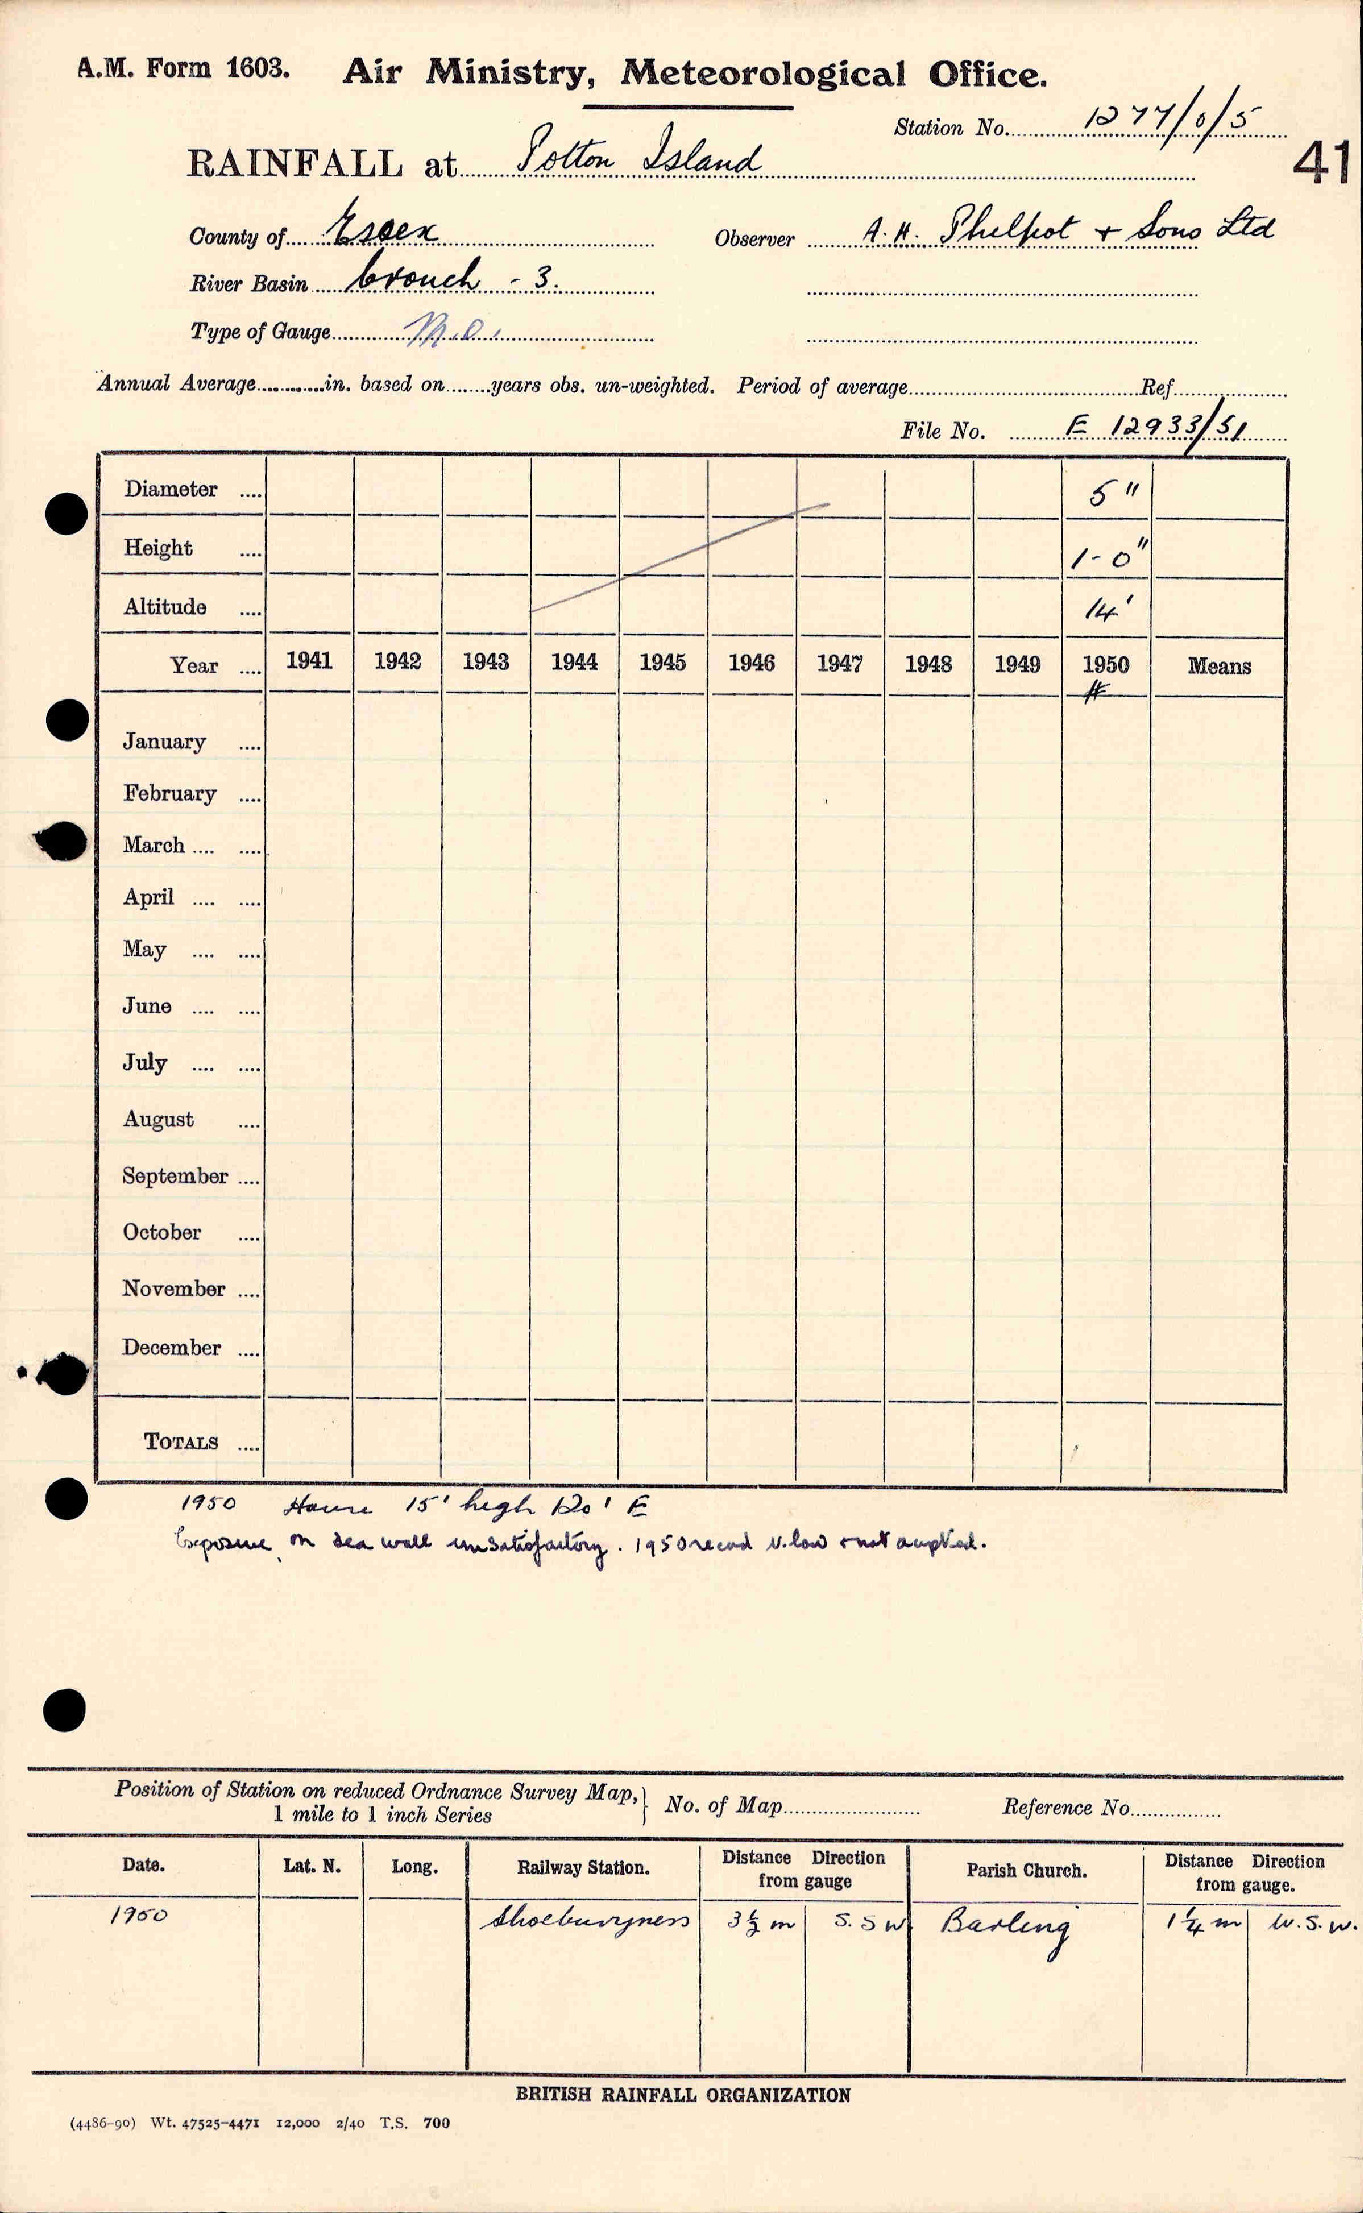 A.M. Form 1603. Air Ministry, Meteorological Office.
Station No. 1277/0/5
41
RAINFALL at Potton Island
County of Essex Observer A. H. Philpot + Sons Ltd
River Basin Crouch - 3.
Type of Gauge M.O.
Annual Average in. based on years obs. un-weighted. Period of average Ref
File No. E 12933/51
Diameter .... 5"
Height .... 1-0"
Altitude .... 14'
Year .... 1941 1942 1943 1944 1945 1946 1947 1948 1949 1950 Means
#
January ....
February ....
March .... ....
April .... ....
May .... ....
June .... ....
July .... ....
August ....
September ....
October ....
November ....
December ....
TOTALS ....
1950 House 15' high 120' E
Exposure on sea wall unsatisfactory. 1950 record v. low + not accepted.
Position of Station on reduced Ordnance Survey Map, 1 mile to 1 inch Series } No. of Map Reference No.
Date. Lat. N. Long. Railway Station. Distance Direction from gauge Parish Church. Distance Direction from gauge.
1950 Shoeburyness 3½ m S.S W Barling 1¼ m W.S.W.
BRITISH RAINFALL ORGANIZATION
(4486-90) Wt. 47525-4471 12,000 2/40 T.S. 700